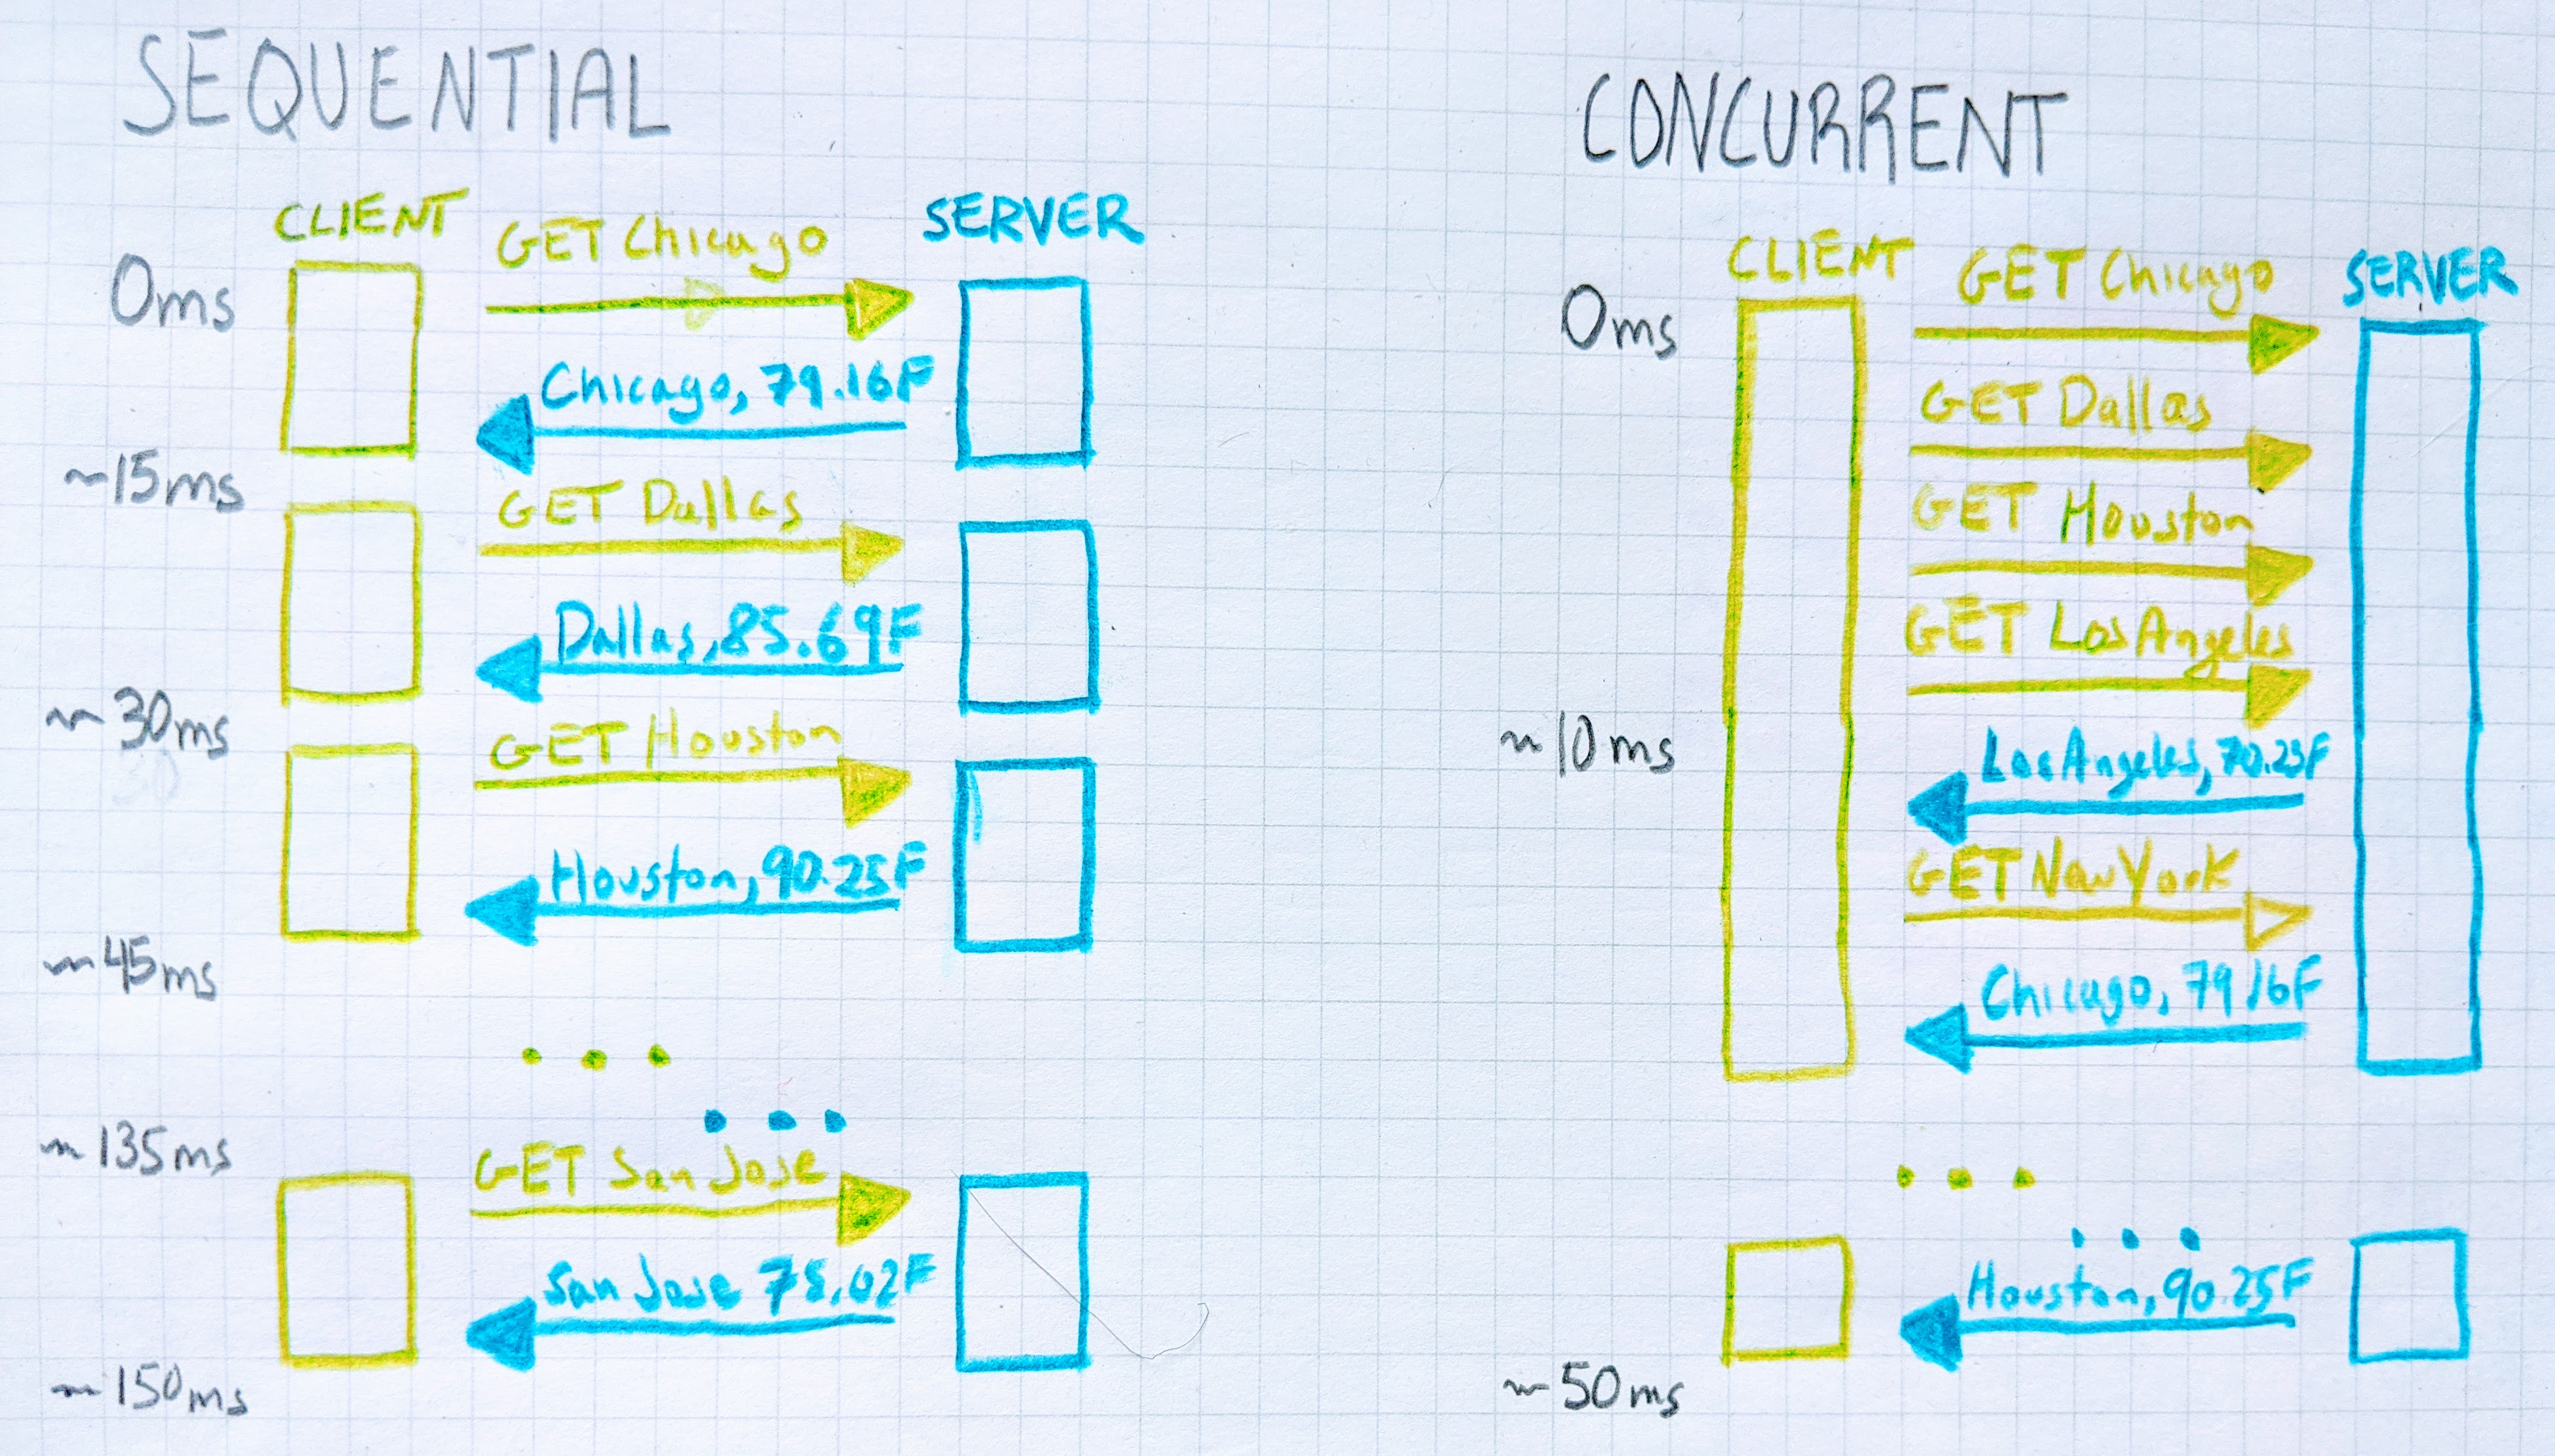 SEQUENTIAL
CLIENT
SERVER
0ms
GET Chicago
Chicago, 79.16F
~15ms
GET Dallas
Dallas, 85.69F
~30ms
GET Houston
Houston, 90.25F
~45ms
...
...
~135ms
GET San Jose
San Jose
~150ms
CONCURRENT
CLIENT
SERVER
0ms
GET Chicago
GET Dallas
GET Houston
GET Los Angeles
~10ms
Los Angeles,
GET New York
Chicago, 79.16F
...
...
Houston, 90.25F
~50ms